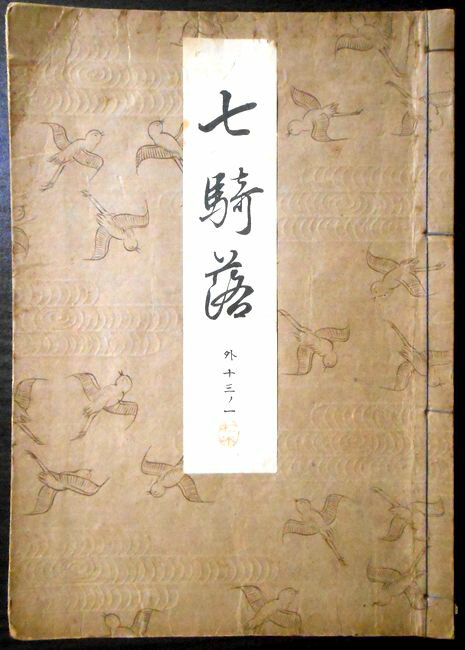 七騎落
外十三ノ一